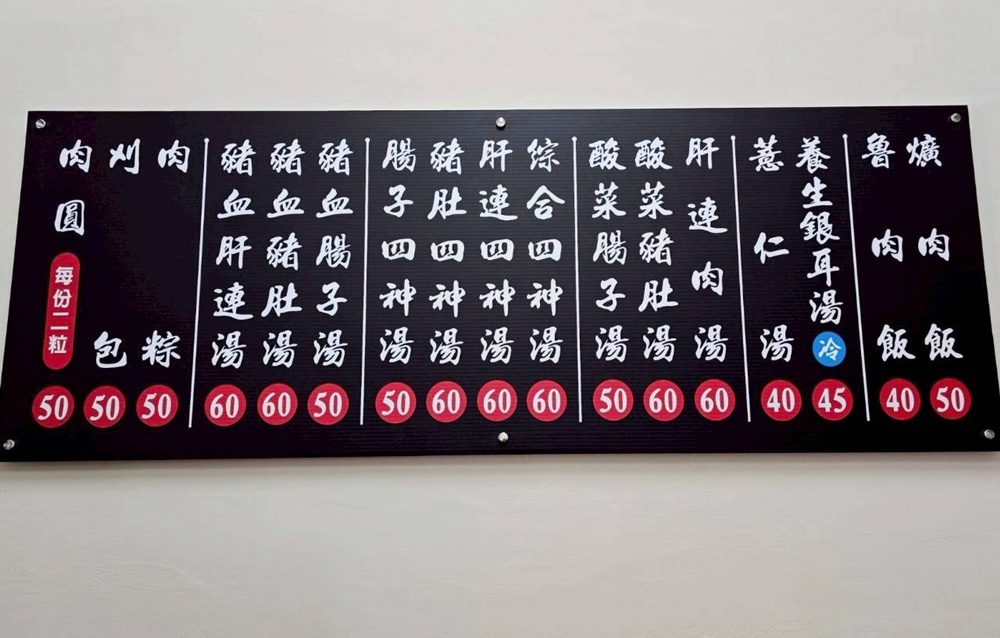 爌肉飯 50
魯肉飯 40
養生銀耳湯 冷 45
薏仁湯 40
肝連肉湯 60
酸菜豬肚湯 60
酸菜腸子湯 50
綜合四神湯 60
肝連四神湯 60
豬肚四神湯 60
腸子四神湯 50
豬血腸子湯 50
豬血豬肚湯 60
豬血肝連湯 60
肉粽 50
刈包 50
肉圓 每份二粒 50